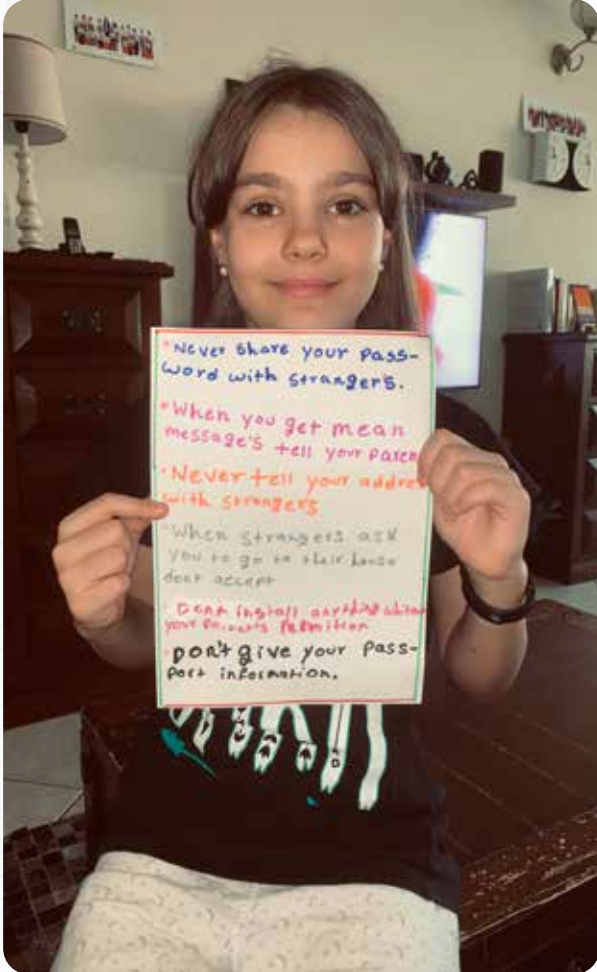 *Never share your pass-
word with strangers.
*When you get mean
message's tell your paren
*Never tell your addre
with strangers
*When strangers ask
you to go to their house
dont accept
Dont install anything
your Parents Permition
Don't give your Pass-
Port information.